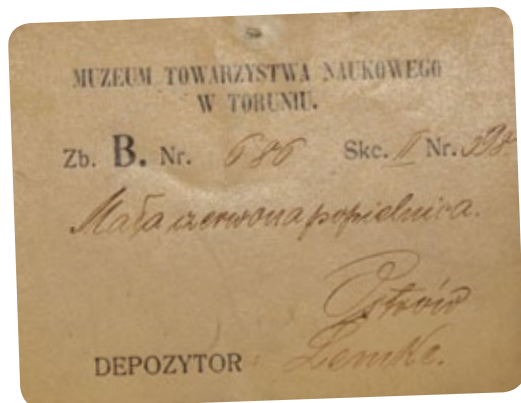 MUZEUM TOWARZYSTWA NAUKOWEGO
W TORUNIU.
Zb. B. Nr. 686 Skc. II Nr. 398.
Mała czerwona popielnica.
Ostrów
DEPOZYTOR Lemke.